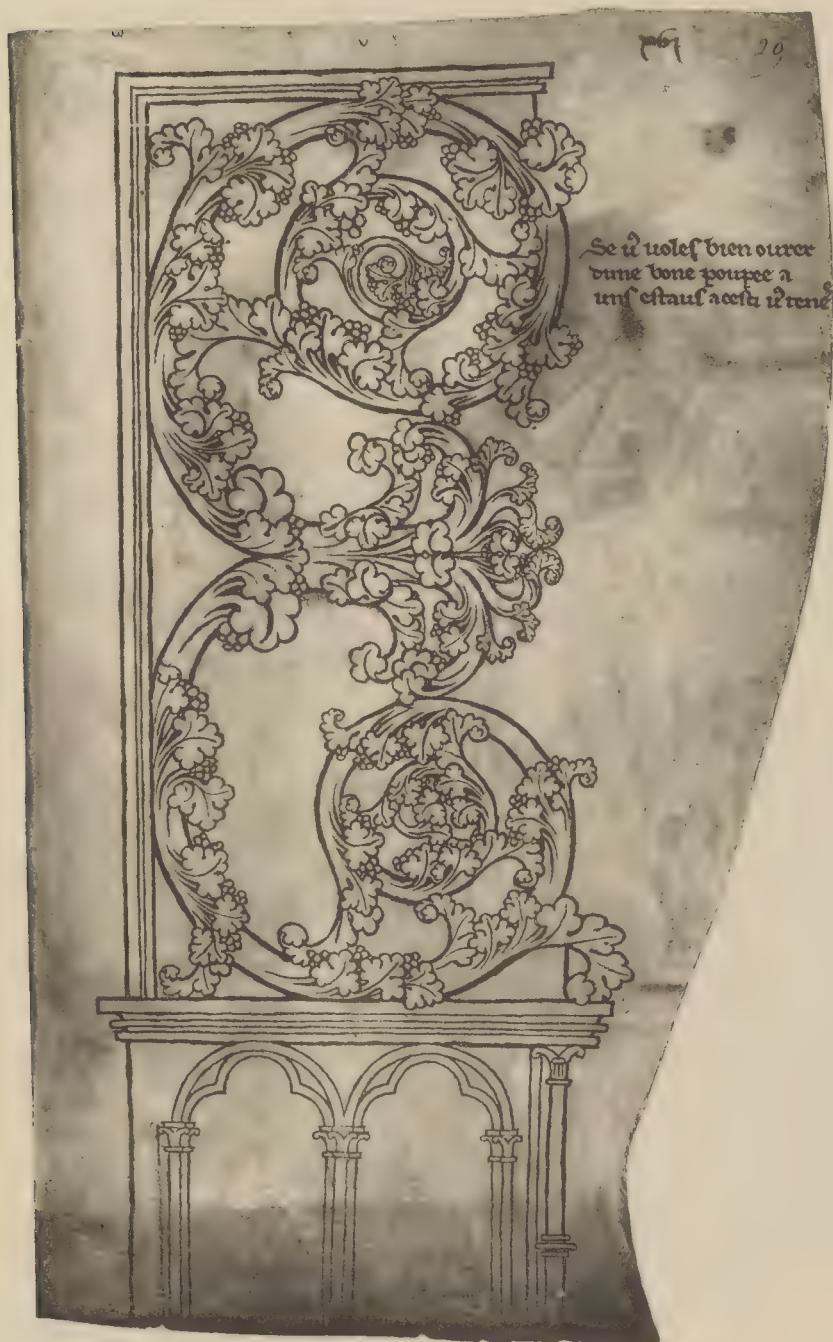 29
Se ꝟ uoleſ bien ourer
dune bone poupee a
unſ eſtauſ aceſti ꝟ tenes